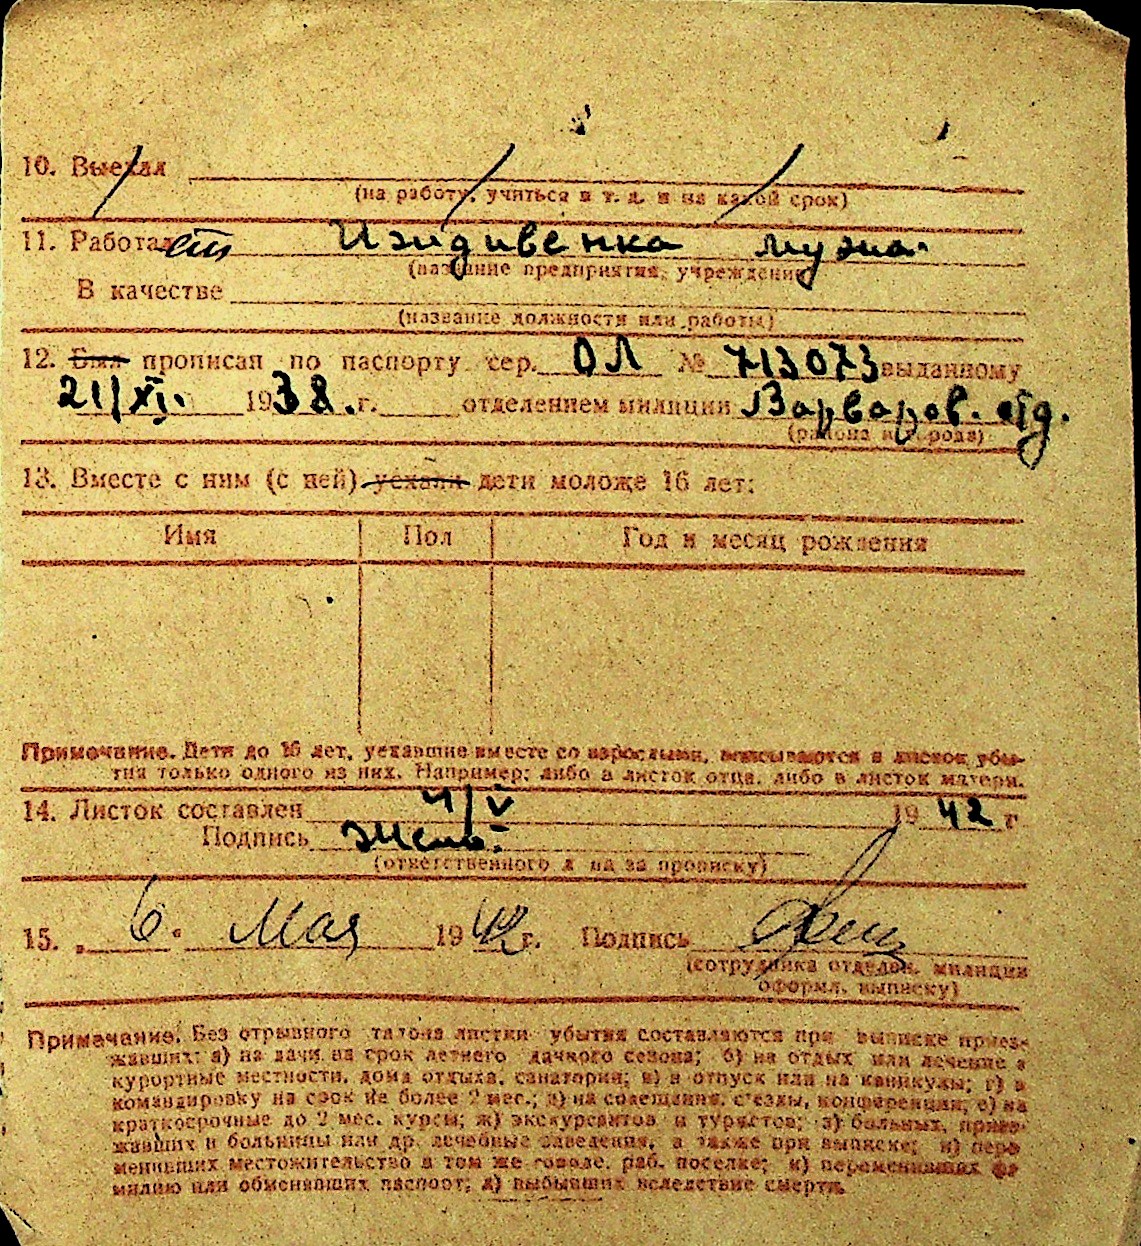 10. Выехал
(на работу, учиться и т. д. и на какой срок)
11. Работает Иждивенка мужа.
(название предприятия, учреждения)
В качестве
(название должности или работы)
12. Был прописан по паспорту сер. ОЛ № 713073 выданному
21/XI. 1938. г. отделением милиции Варваров. отд.
(района и города)
13. Вместе с ним (с ней) уехали дети моложе 16 лет:
Имя Пол Год и месяц рождения
Примечание. Дети до 16 лет, уехавшие вместе со взрослыми, вписываются в листок убы-
тия только одного из них. Например: либо в листок отца, либо в листок матери.
14. Листок составлен 4/V 1942 г
Подпись
(ответственного л ца за прописку)
15. „ 6 “ Мая 1942 г. Подпись
(сотрудника отделен. милиции
оформл. выписку)
Примечание. Без отрывного талона листки убытия составляются при выписке приез-
жавших: а) на дачи на срок летнего дачного сезона; б) на отдых или лечение в
курортные местности, дома отдыха, санатории; в) в отпуск или на каникулы; г) в
командировку на срок не более 2 мес.; д) на совещания, с'езды, конференции; е) на
краткосрочные до 2 мес. курсы; ж) экскурсантов и туристов; з) больных, приез-
жавших в больницы или др. лечебные заведения, а также при выписке; и) пере
менивших местожительство в том же городе, раб. поселке; к) переменивших фа
милию или обменявших паспорт; л) выбывших вследствие смерти.